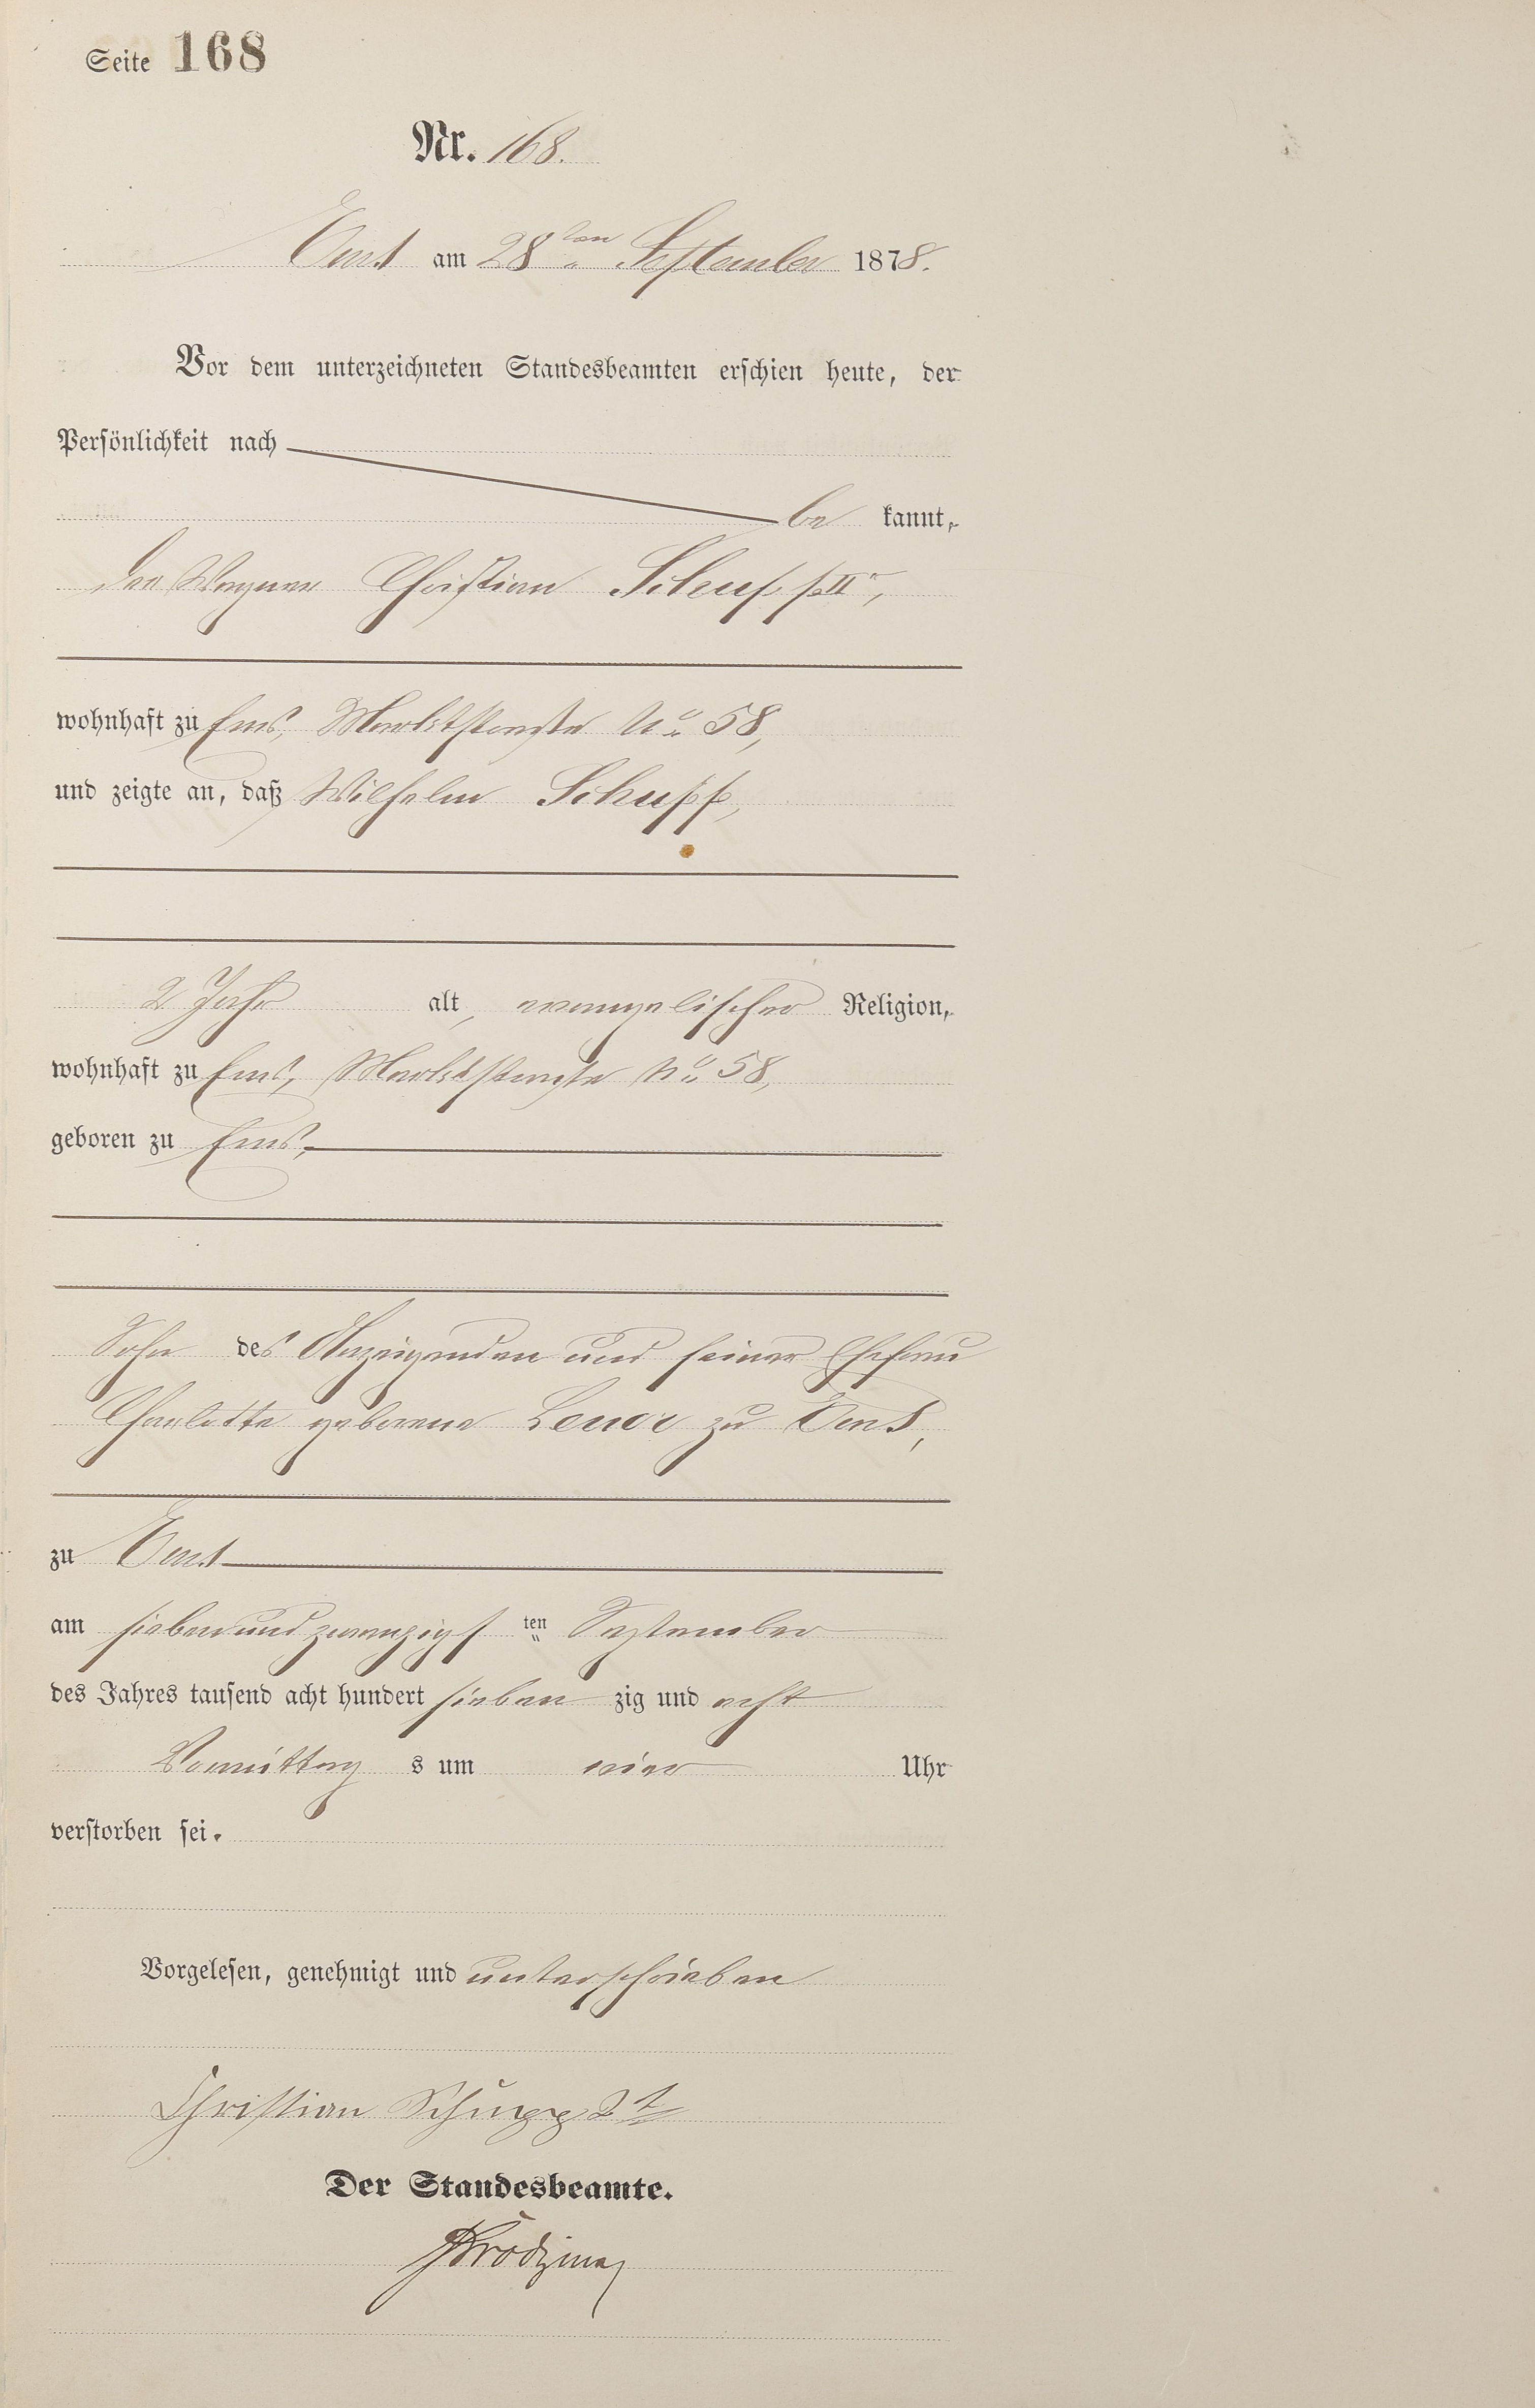 Seite 168
Nr. 168.
Ems am 28ten September 1878.
Vor dem unterzeichneten Standesbeamten erschien heute, der
Persönlichkeit nach
be kannt,
der Wagner Christian Schupp IIr,
wohnhaft zu Ems, Marktstraße No 58,
und zeigte an, daß Wilhelm Schupp,
2 Jahr alt, evangelischer Religion,
wohnhaft zu Ems, Marktstraße No 58,
geboren zu Ems,
Sohn des Anzeigenden und seiner Ehefrau
Charlotte geborene zu Ems,
zu Ems
am siebenundzwanzigsten September
des Jahres tausend acht hundert siebenzig und acht
Vormittags um vier Uhr
verstorben sei.
Vorgelesen, genehmigt und unterschrieben
Christian Schupp 2t
Der Standesbeamte.